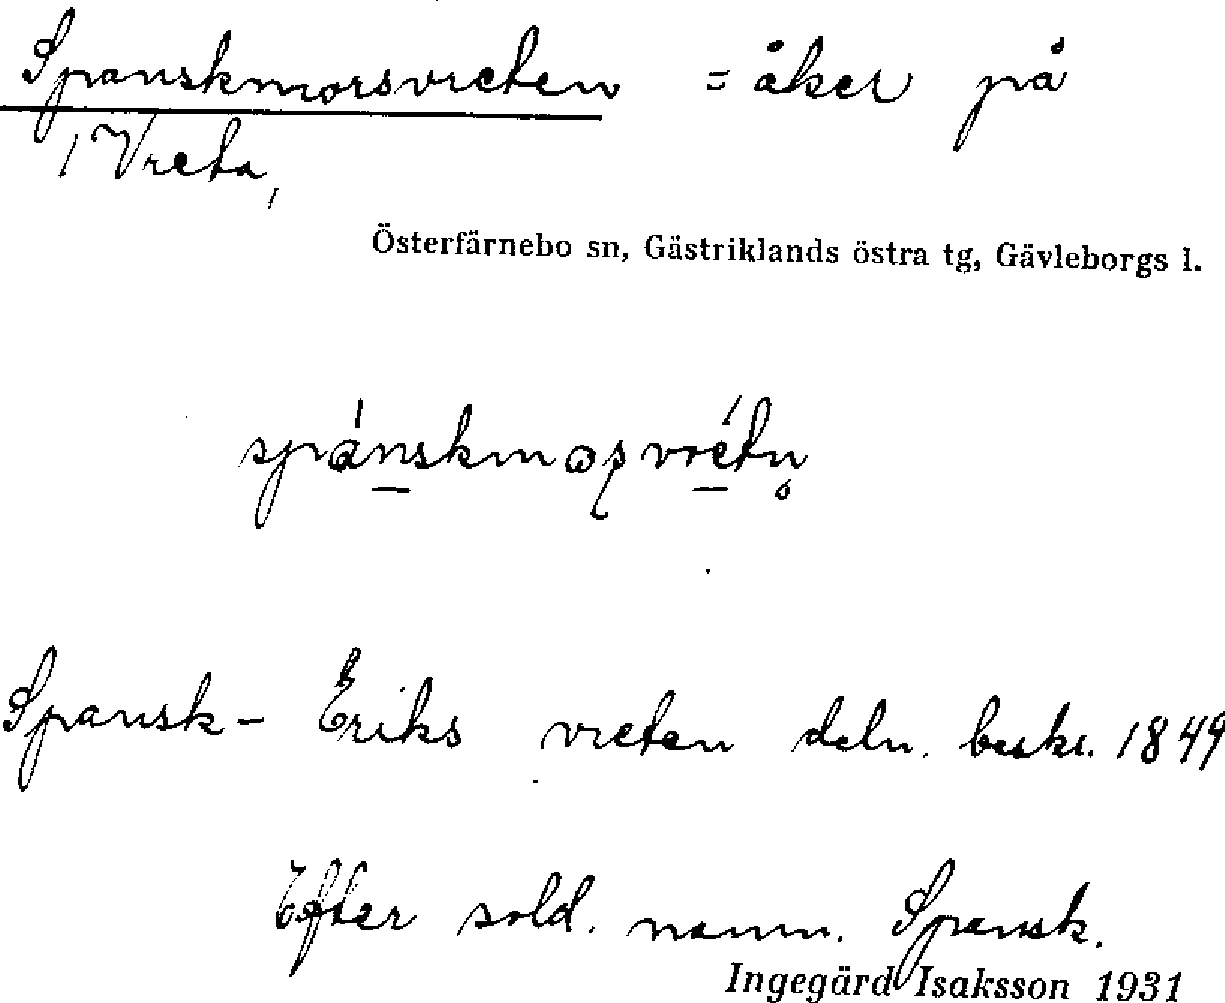 Spanskmorsvreten = åker på
/ Vreta,
Österfärnebo sn, Gästriklands östra tg, Gävleborgs l.
Spansk- Eriks vreten deln. beskr. 1849
Efter sold. namn. Spansk.
Ingegärd Isaksson 1931